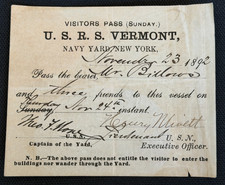 VISITORS PASS (SUNDAY.)
U. S. R. S. VERMONT,
NAVY YARD, NEW YORK.
November 23 1892
Pass the bearer Mr.
and three friends to this vessel on
Sunday, Nov 24th instant.
Henry
Lieutenant U. S. N.,
Captain of the Yard. Executive Officer.
N. B.—The above pass does not entitle the visitor to enter the
buildings nor wander through the Yard.